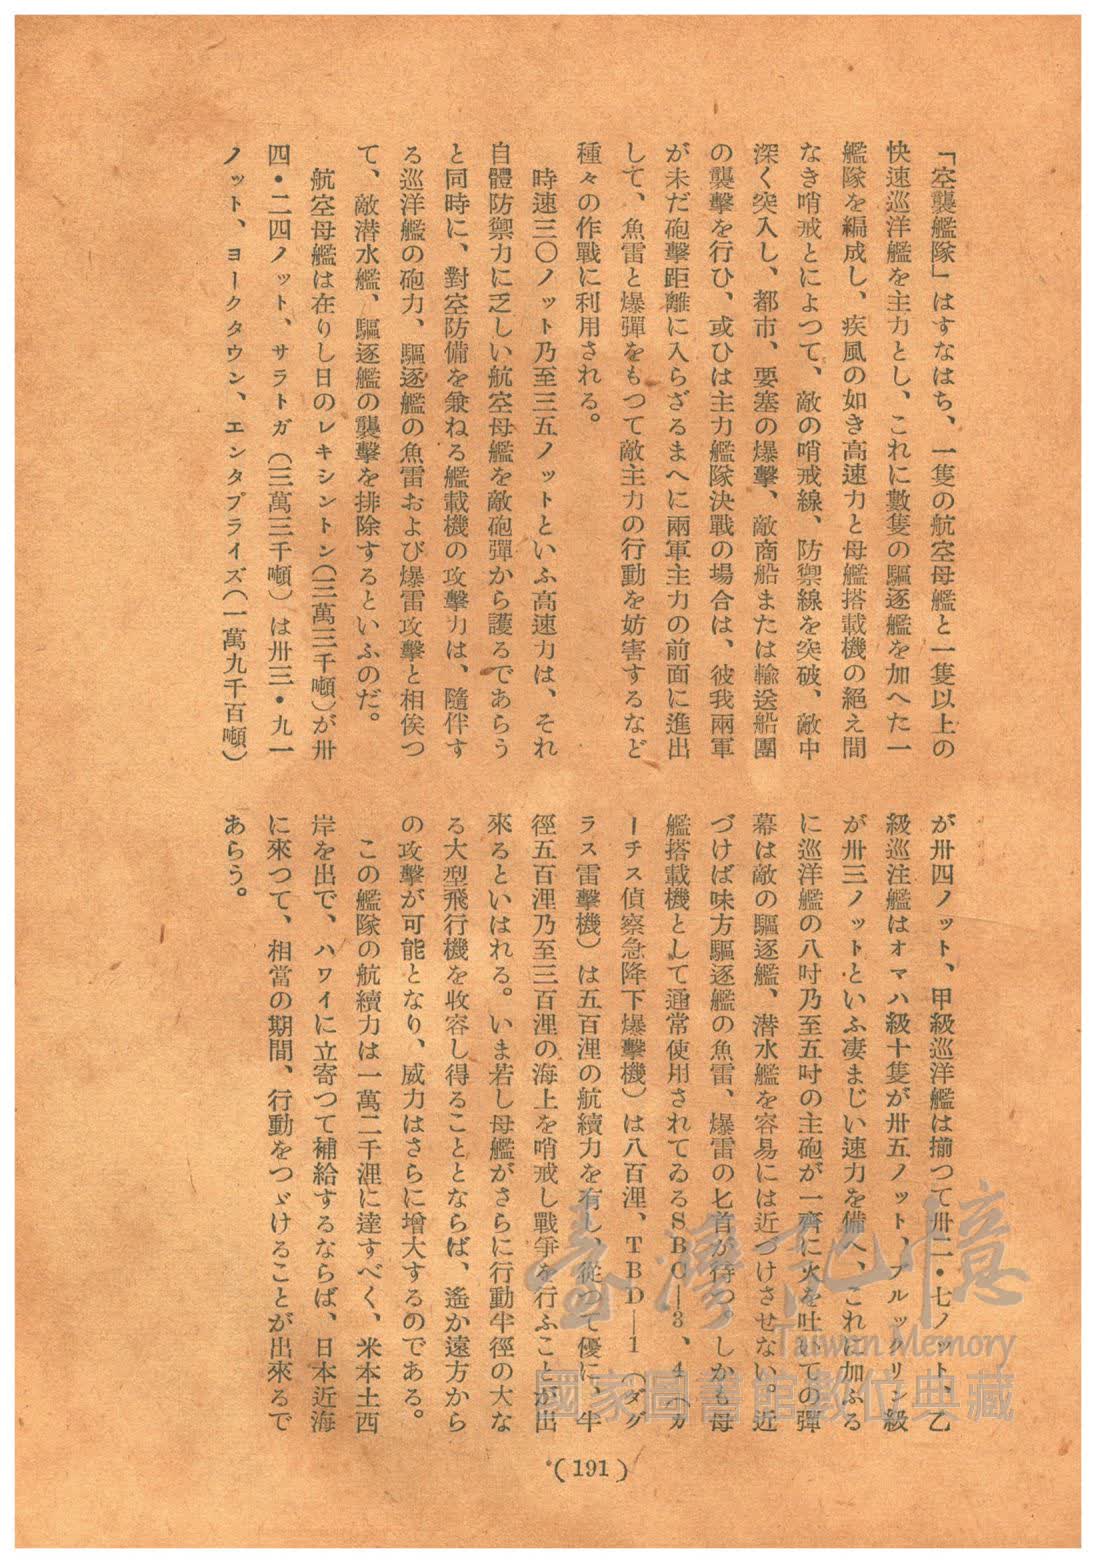 「空襲艦隊」はすなはち、一隻の航空母艦と一隻以上の
快速巡洋艦を主力とし、これに數隻の驅逐艦を加へた一
艦隊を編成し、疾風の如き高速力と母艦搭載機の絶え間
なき哨戒とによつて、敵の哨戒線、防禦線を突破、敵中
深く突入し、都市、要塞の爆擊、敵商船または輸送船團
の襲擊を行ひ、或ひは主力艦隊決戰の場合は、彼我兩軍
が未だ砲擊距離に入らざるまへに兩軍主力の前面に進出
して、魚雷と爆彈をもつて敵主力の行動を妨害するなど
種々の作戰に利用される。
時速三〇ノット乃至三五ノットといふ高速力は、それ
自體防禦力に乏しい航空母艦を敵砲彈から護るであらう
と同時に、對空防備を兼ねる艦載機の攻擊力は、隨伴す
る巡洋艦の砲力、驅逐艦の魚雷および爆雷攻擊と相俟つ
て、敵潜水艦、驅逐艦の襲擊を排除するといふのだ。
航空母艦は在りし日のレキシントン(三萬三千噸)が卅
四・二四ノット、サラトガ(三萬三千噸)は卅三・九一
ノット、ヨークタウン、エンタプライズ(一萬九千百噸)
が卅四ノット、甲級巡洋艦は揃つて卅二・七ノット、乙
級巡注艦はオマハ級十隻が卅五ノット、ブルックリン級
が卅三ノットといふ凄まじい速力を備へ、これに加ふる
に巡洋艦の八吋乃至五吋の主砲が一齊に火を吐いての彈
幕は敵の驅逐艦、潜水艦を容易には近づけさせない。近
づけば味方驅逐艦の魚雷、爆雷の匕首が待つ。しかも母
艦搭載機として通常使用されてゐるSBC—3、4(カ
ーチス偵察急降下爆擊機)は八百浬、TBD—1(ダグ
ラス雷擊機)は五百浬の航續力を有し、從つて優に、半
徑五百浬乃至三百浬の海上を哨戒し戰爭を行ふことが出
來るといはれる。いま若し母艦がさらに行動半徑の大な
る大型飛行機を收容し得ることとならば、遙か遠方から
の攻擊が可能となり、威力はさらに增大するのである。
この艦隊の航續力は一萬二千浬に達すべく、米本土西
岸を出で、ハワイに立寄つて補給するならば、日本近海
に來つて、相當の期間、行動をつゞけることが出來るで
あらう。
(191)
臺灣記憶
Taiwan Memory
國家圖書館數位典藏